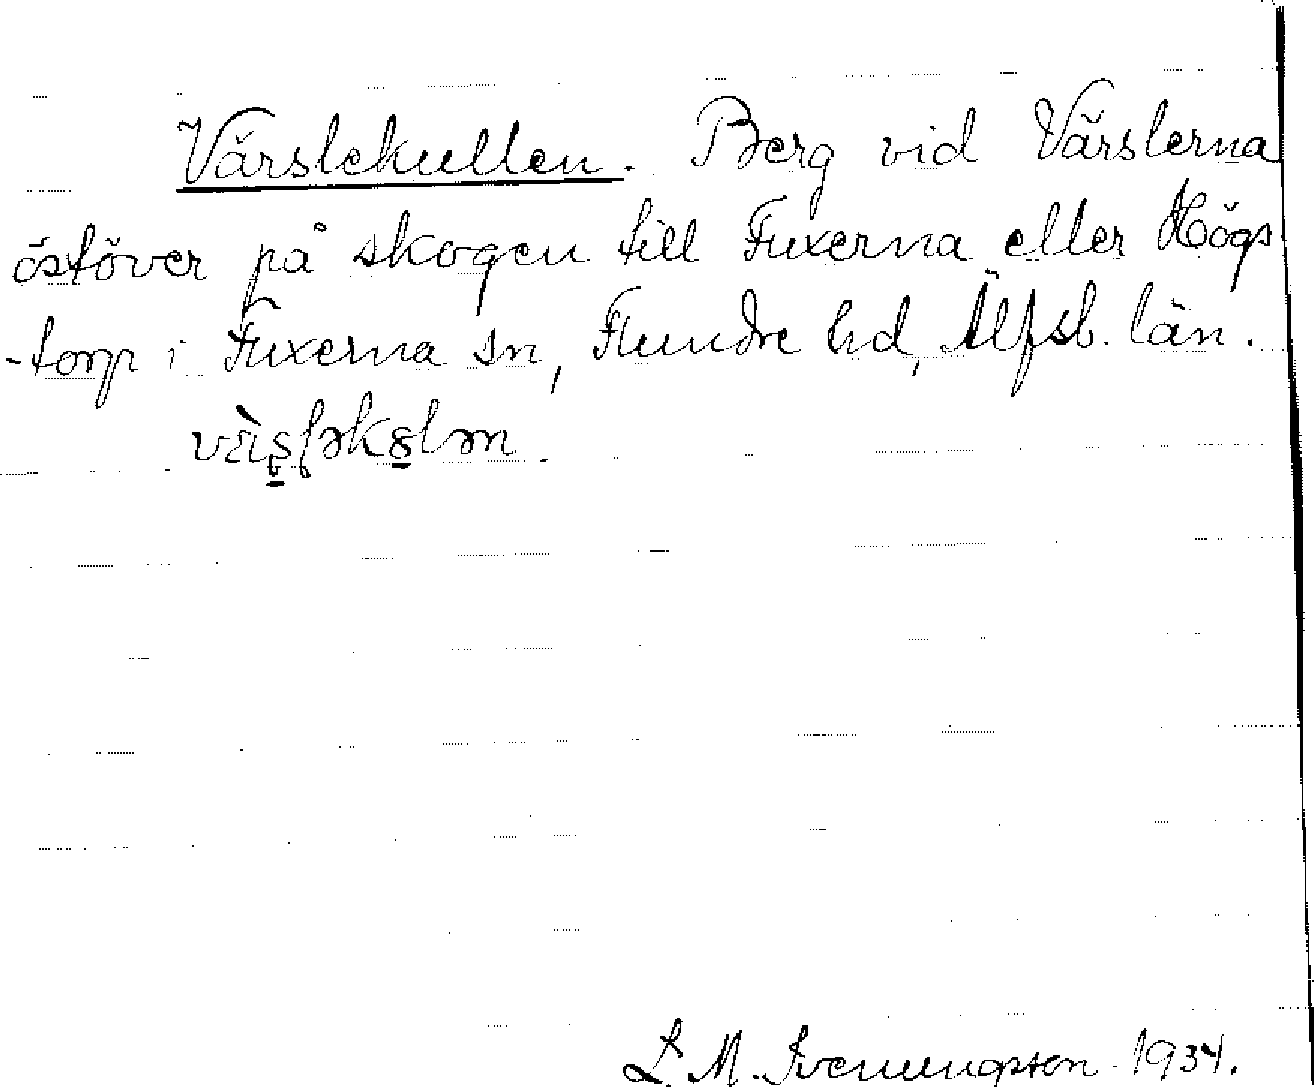 Värslekullen. Berg vid Värslerna
östöver på skogen till Fuxerna eller Högs
-torp i Fuxerna sn, Flundre hd, Älfsb. län.
L. M. Svenungsson 1934.